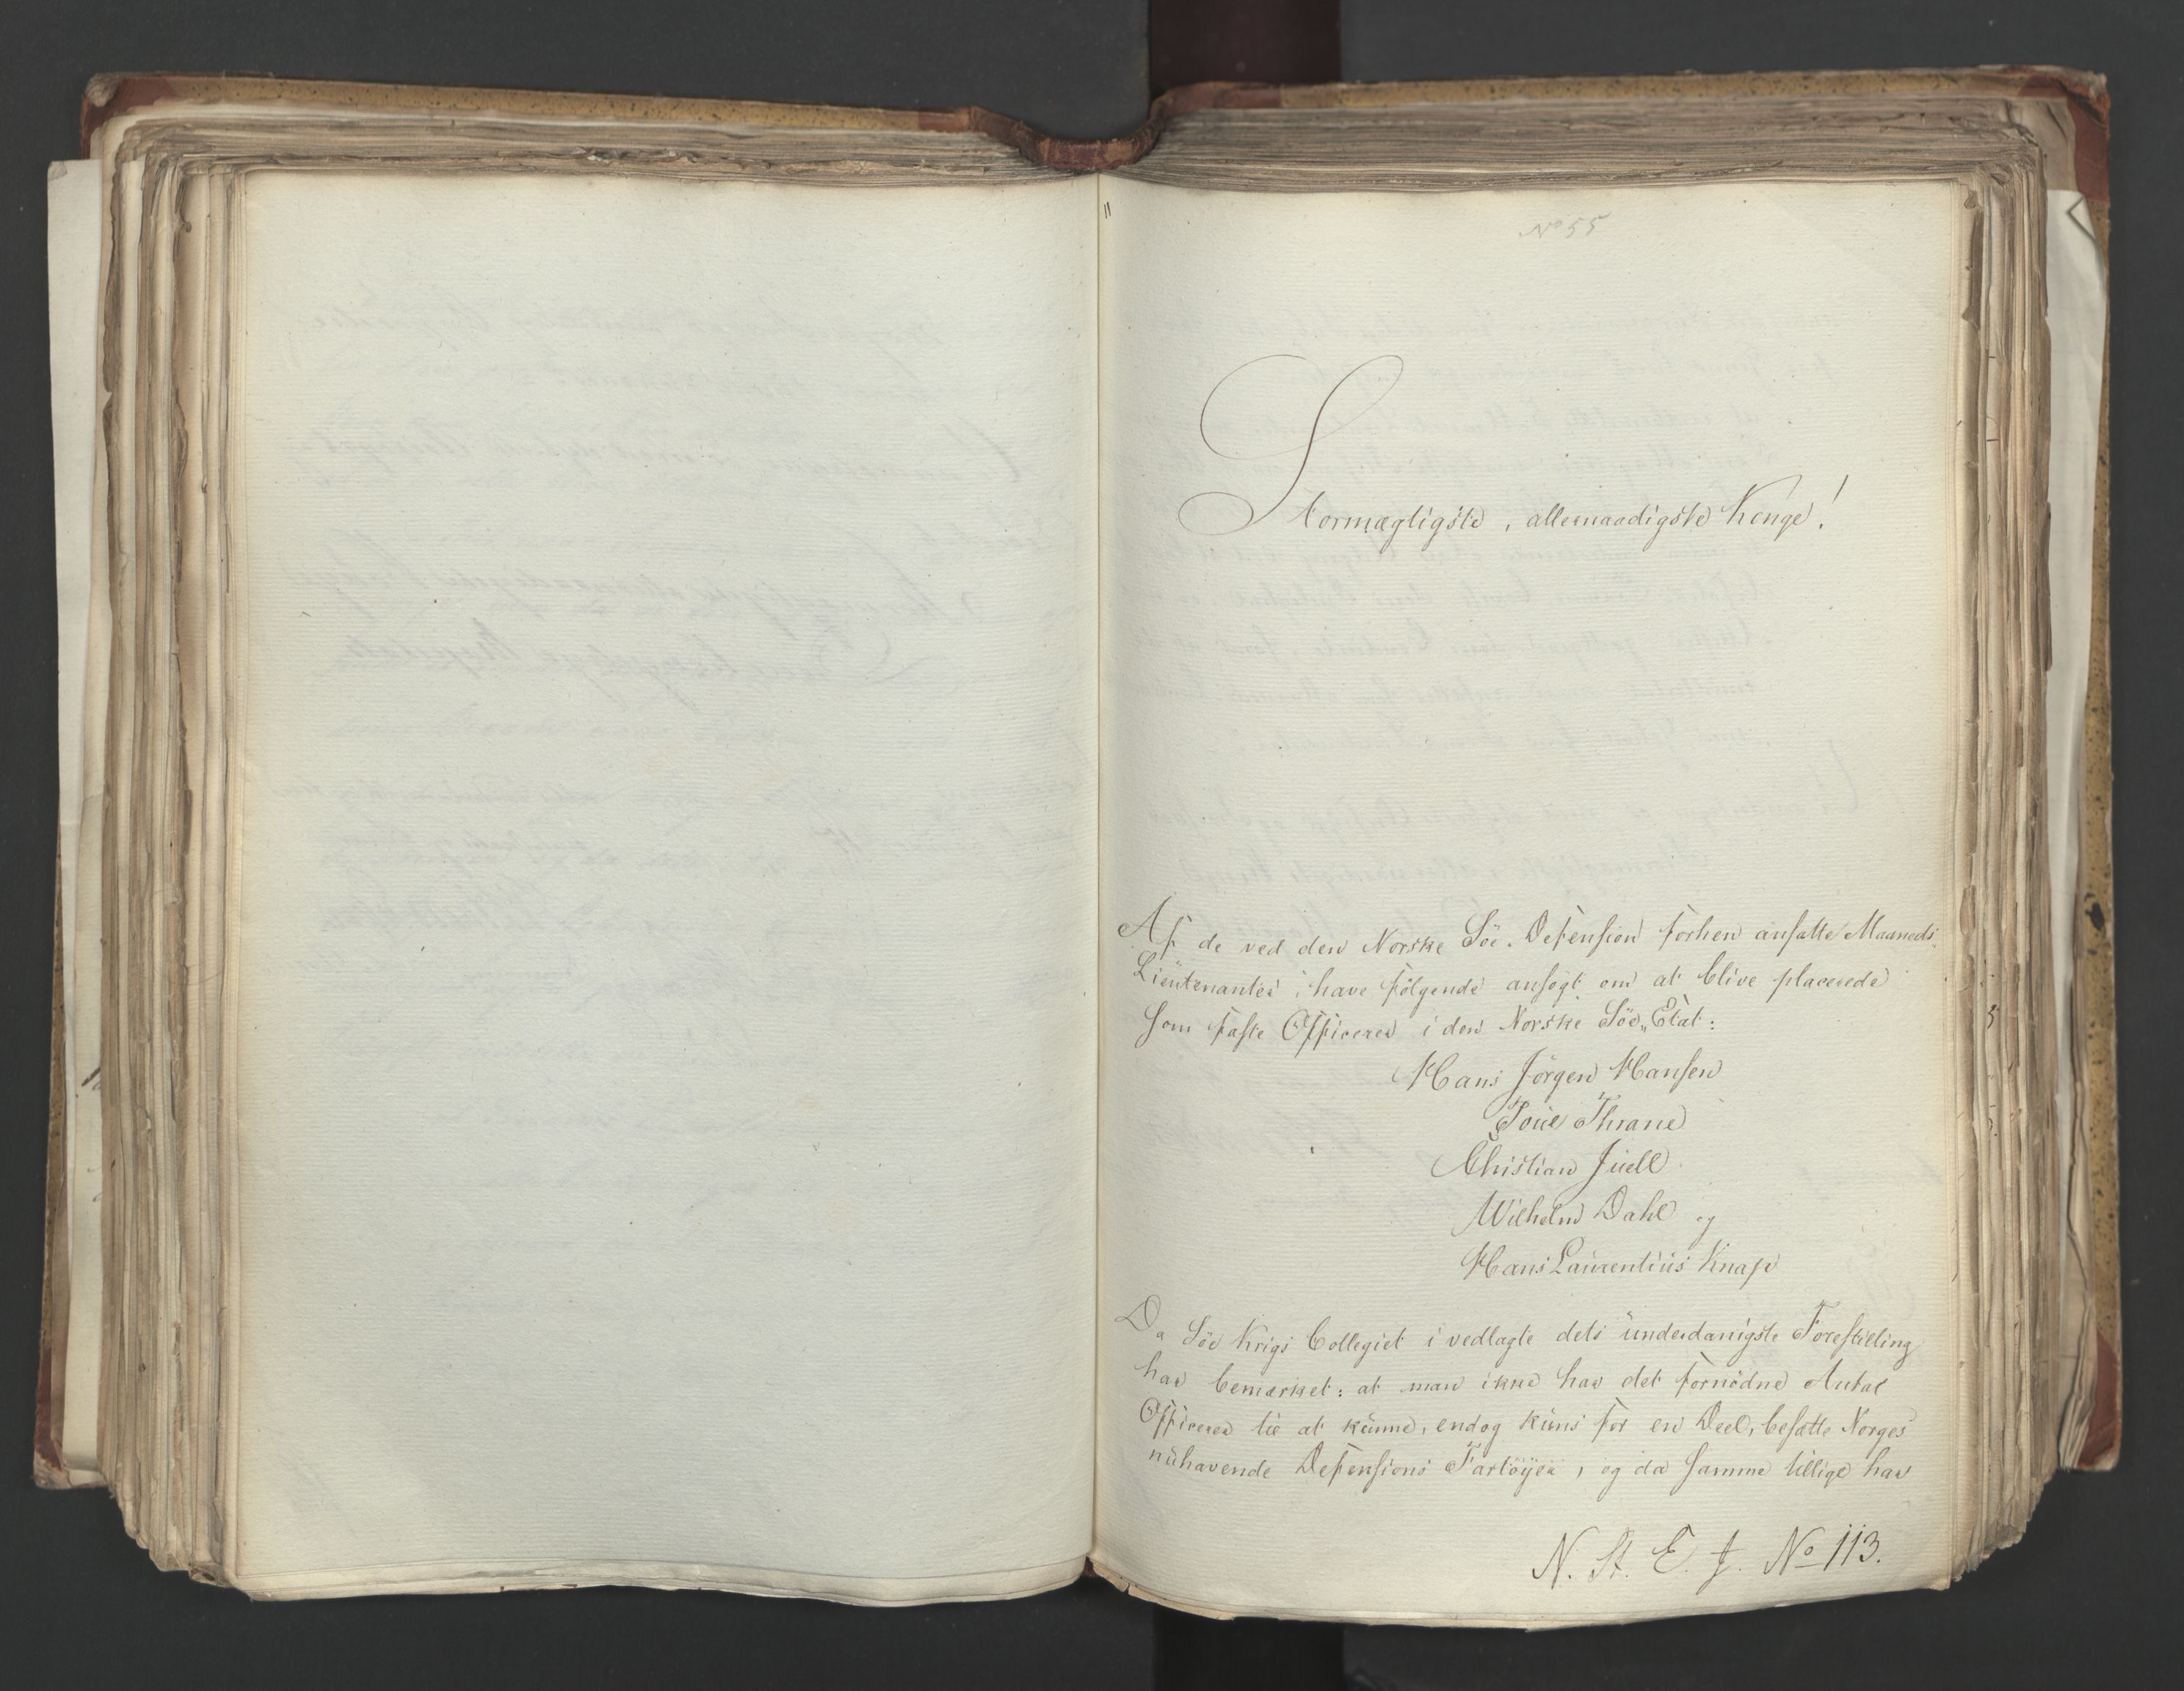 No 55
Stormægtigste, allernaadigste Konge!
Af de ved den Norske Söe-Defension forhen ansatte Maaneds-
Lieutenanter, have fölgende ansögt om at blive placerede
som faste Officerer i den Norske Söe-Etat:
Hans Jörgen Hansen
Poüel Thrane
Christian Juell
Wilhelm Dahl og
Hans Laurentius Knap
Da Söe Krigs Collegiet i vedlagte dets underdanigste Forestilling
har bemærket: at man ikke har det fornödne Antal
Officerer til at kunne, endog kuns for en Deel, besætte Norges
nuhavende Defensions Fartöyer, og da samme tillige har
N. St. E. J. No 113.